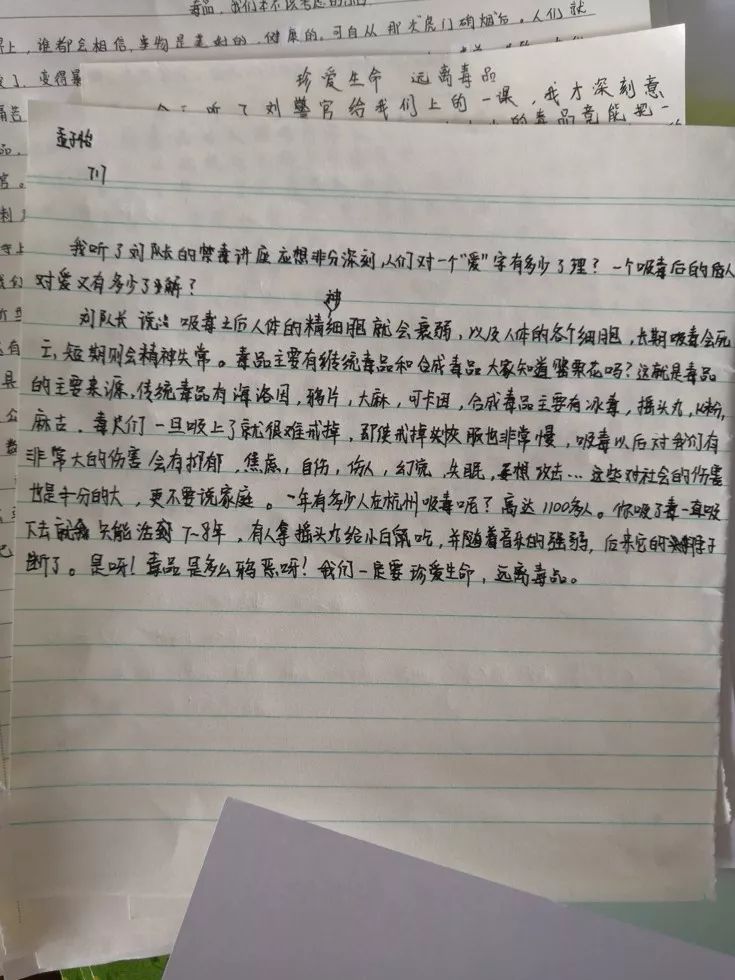 毒品,我们本不该考虑的
上,谁都会相信,事物是美好的,健康的。可自从那次虎门硝烟后。人们就
变得暴
珍爱生命 远离毒品
听了刘警官给我们上的一课,我才深刻意
的毒品竟能把一
717
我听了刘队长的禁毒讲座应想非分深刻,人们对一个"爱"字有多少了理?一个吸毒后的病人
对爱又有多少了解?
神
刘队长说:吸毒之后人体的精细胞就会衰弱,以及人体的各个细胞,长期吸毒会死
亡,短期则会精神失常。毒品主要有传统毒品和合成毒品大家知道罂粟花吗?这就是毒品
的主要来源,传统毒品有海洛因,鸦片,大麻,可卡因,合成毒品主要有冰毒,摇头丸,K粉,
麻古。毒品们一旦吸上了就很难戒掉,即使戒掉恢服也非常慢,吸毒以后对我们有
非常大的伤害会有抑郁,焦虑,自伤,伤人,幻觉,失眠,要想攻击…这些对社会的伤害
也是十分的大,更不要说家庭。一年有多少人在杭州吸毒呢?高达1100多人。你吸了毒一直吸
下去就只能活到7~8年,有人拿摇头丸给小白鼠吃,并随着音乐的强弱,后来它的脖子
断了。是呀!毒品是多么鸦恶呀!我们一定要珍爱生命,远离毒品。